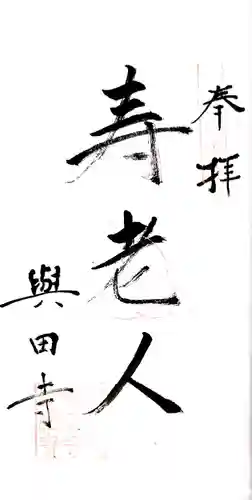 奉拝
寿老人
與田寺